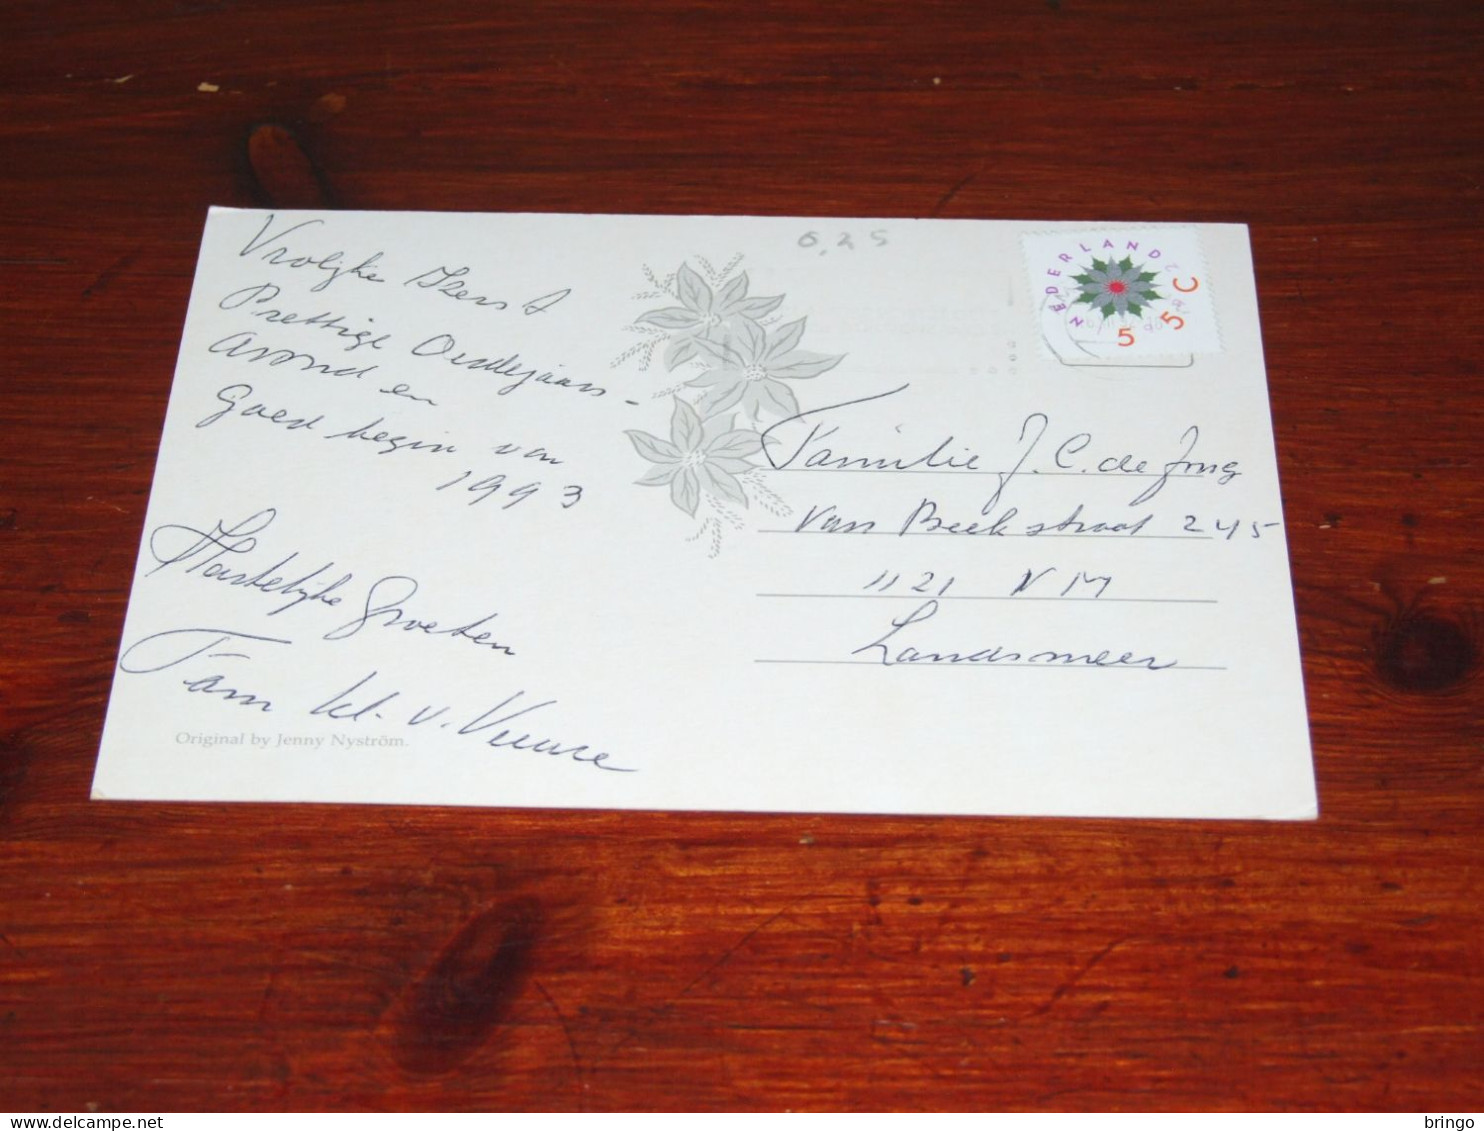 Vrolijke Kerst
Prettige Oudejaars-
avond en
goed begin van
1993
Hartelijke Groeten
Fam kl. v.
Original by Jenny Nyström.
0,25
NEDERLAND
55 C
Familie J. C. de Jong
Van Beekstraat 245
1121 NM
Landsmeer
bringo